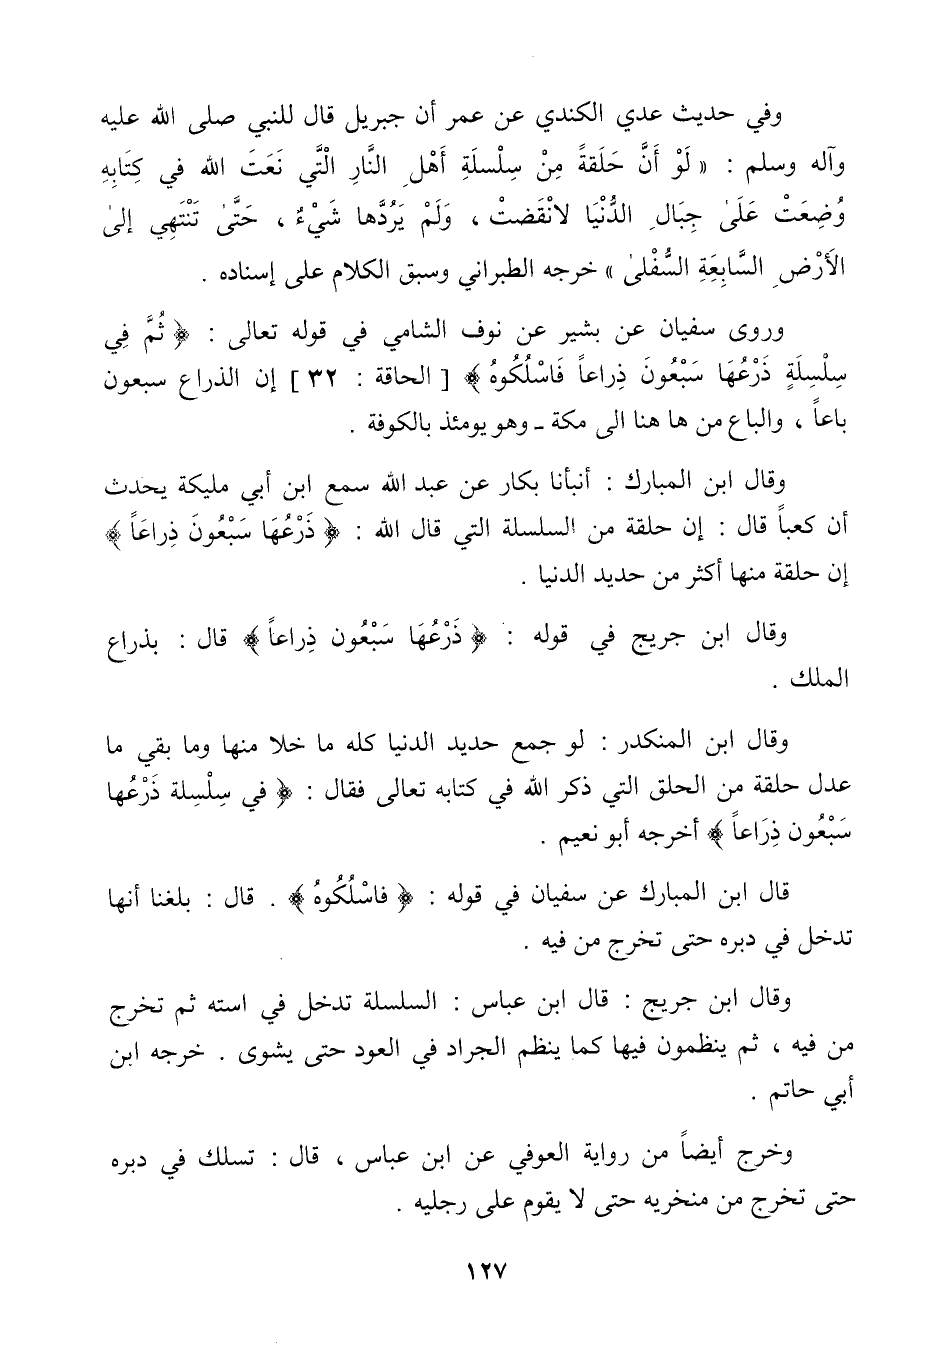 وفي حديث عدي الكندي عن عمر أن جبريل قال للنبي صلى الله عليه
وآله وسلم : « لَوْ أَنَّ حَلَقةً مِنْ سِلْسلَةِ أَهْلِ النَّارِ الْتَّي نَعَتَ الله في كِتَابِهِ
وُضِعَتْ عَلَىٰ جِبَالِ الدُّنْيَا لانْقَضتْ ، وَلَمْ يَرُدَّها شَيْءٌ ، حَتَّىٰ تَنْتَهِي إلىٰ
الأَرْضِ السَّابِعَةِ السُّفْلىٰ » خرجه الطبراني وسبق الكلام على إسناده .
وروى سفيان عن بشير عن نوف الشامي في قوله تعالى : ﴿ ثُمَّ فِي
سِلْسِلَةٍ ذَرْعُهَا سَبْعُونَ ذِراعاً فَاسْلُكُوهُ ﴾ [ الحاقة : ٣٢ ] إن الذراع سبعون
باعاً ، والباع من ها هنا الى مكة ـ وهو يومئذ بالكوفة .
وقال ابن المبارك : أنبأنا بكار عن عبد الله سمع ابن أبي مليكة يحدث
أن كعباً قال : إن حلقة من السلسلة التي قال الله : ﴿ ذَرْعُهَا سَبْعُونَ ذِراعَاً ﴾
إن حلقة منها أكثر من حديد الدنيا .
وقال ابن جريج في قوله : ﴿ ذَرْعُهَا سَبْعُون ذِراعاً ﴾ قال : بذراع
الملك .
وقال ابن المنكدر : لو جمع حديد الدنيا كله ما خلا منها وما بقي ما
عدل حلقة من الحلق التي ذكر الله في كتابه تعالى فقال : ﴿ في سِلْسِلة ذَرْعُها
سَبْعُون ذِرَاعاً ﴾ أخرجه أبو نعيم .
قال ابن المبارك عن سفيان في قوله : ﴿ فاسْلُكُوهُ ﴾ . قال : بلغنا أنها
تدخل في دبره حتى تخرج من فيه .
وقال ابن جريج : قال ابن عباس : السلسلة تدخل في استه ثم تخرج
من فيه ، ثم ينظمون فيها كما ينظم الجراد في العود حتى يشوى . خرجه ابن
أبي حاتم .
وخرج أيضاً من رواية العوفي عن ابن عباس ، قال : تسلك في دبره
حتى تخرج من منخريه حتى لا يقوم على رجليه .
١٢٧